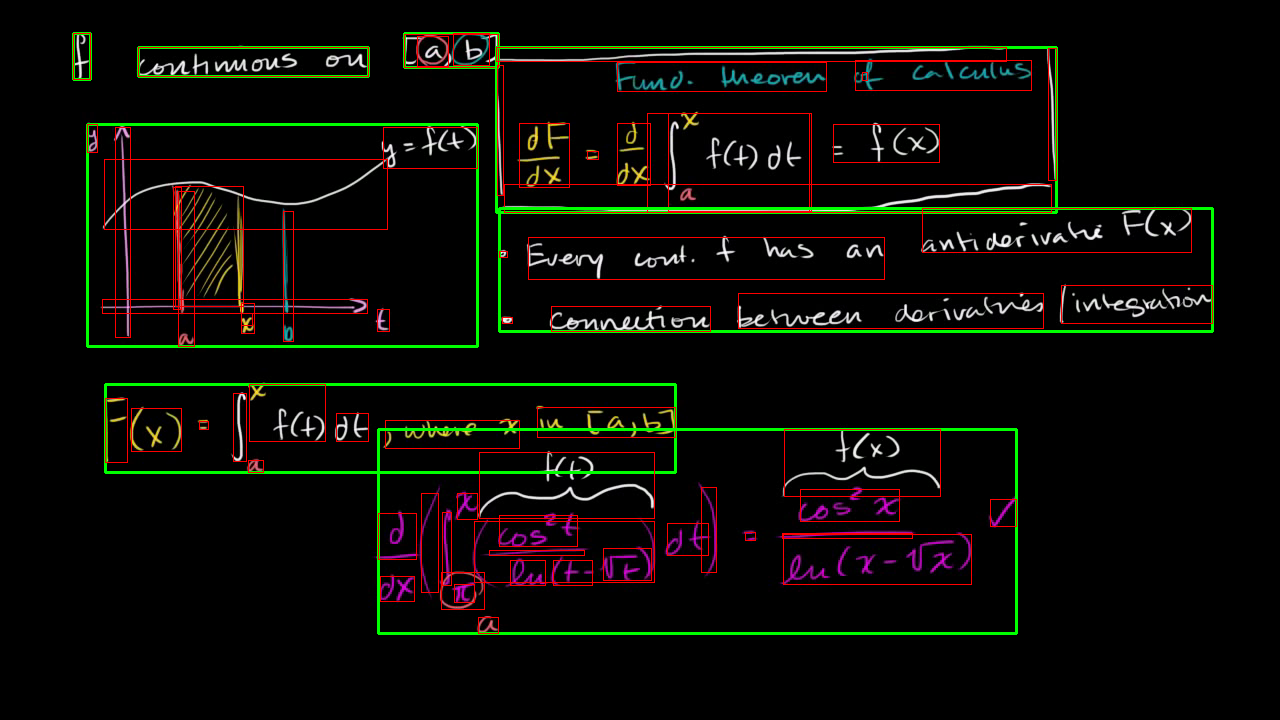 f continuous on [a,b]
Fund. theorem of calculus
y
y = f(t)
dF/dx = d/dx ∫_a^x f(t) dt = f(x)
a x b t
· Every cont. f has an antiderivative F(x)
· connection between derivatives / integration
F(x) = ∫_a^x f(t) dt, where x in [a,b]
f(t) f(x)
d/dx (∫_π^x (cos²t / ln(t-√t)) dt) = cos²x / ln(x-√x) ✓
a